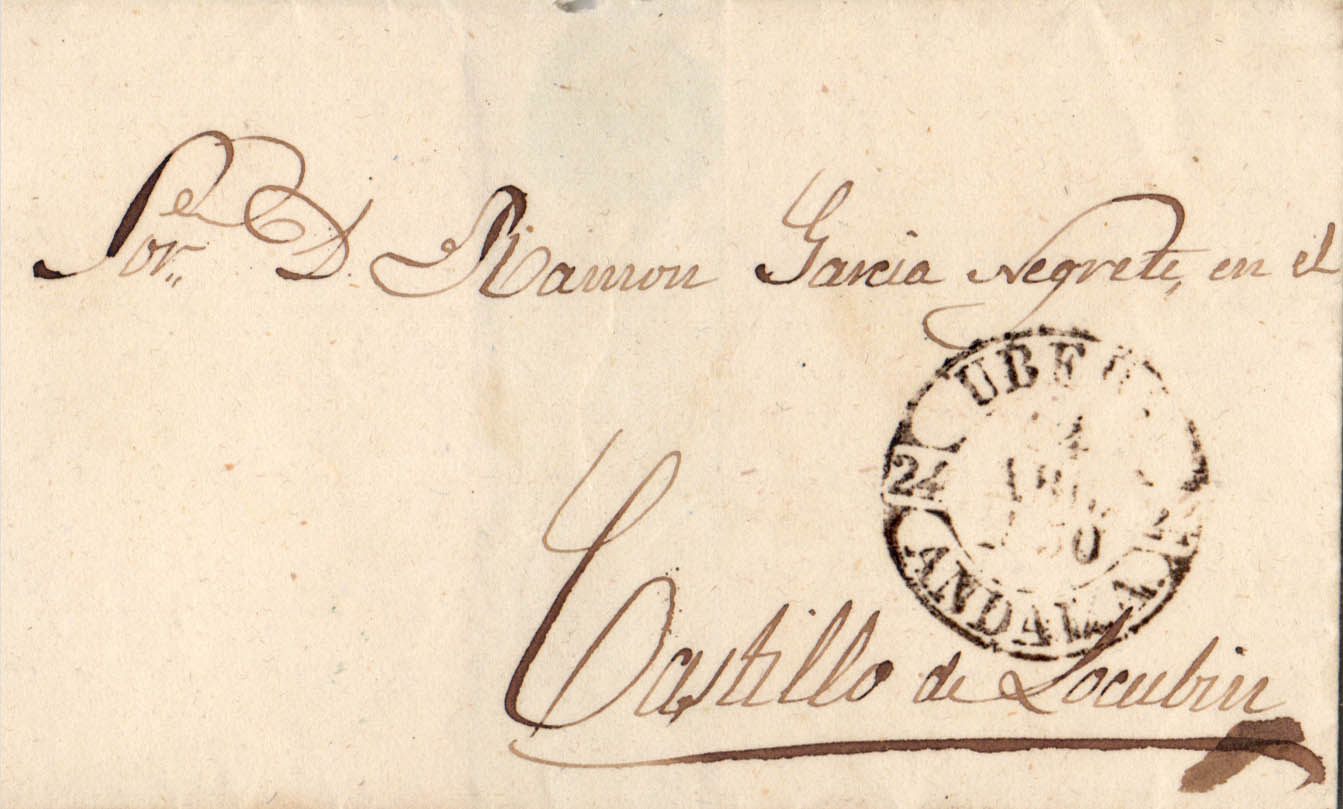 Sor. D. Ramon Garcia Negrete, en el
UBE
24
50
ANDAL. A
Castillo de Locubin